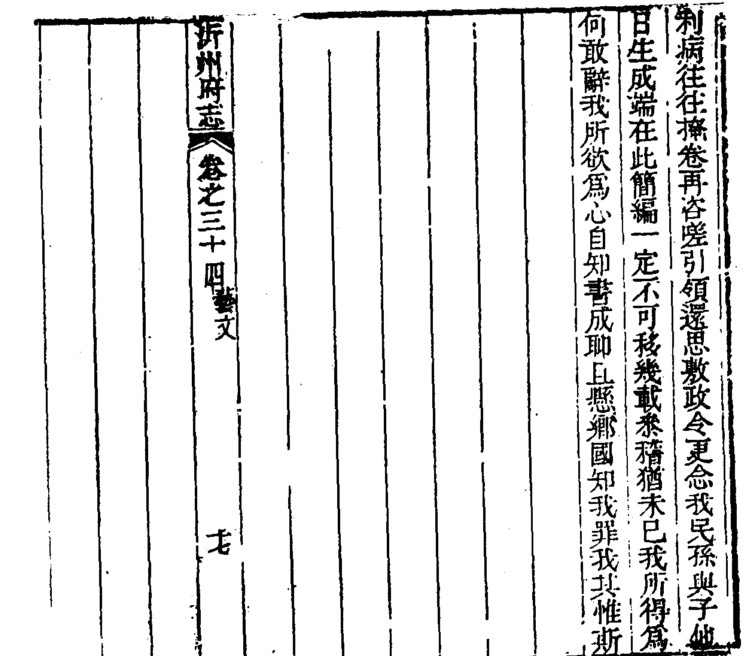 利病往往掩卷再咨嗟引領還思敷政令更念我民孫與子他
日生成端在此簡編一定不可移幾載叅稽猶未已我所得爲
何敢辭我所欲爲心自知書成聊且懸鄉國知我罪我其惟斯
沂州府志
卷之三十四
藝文
七